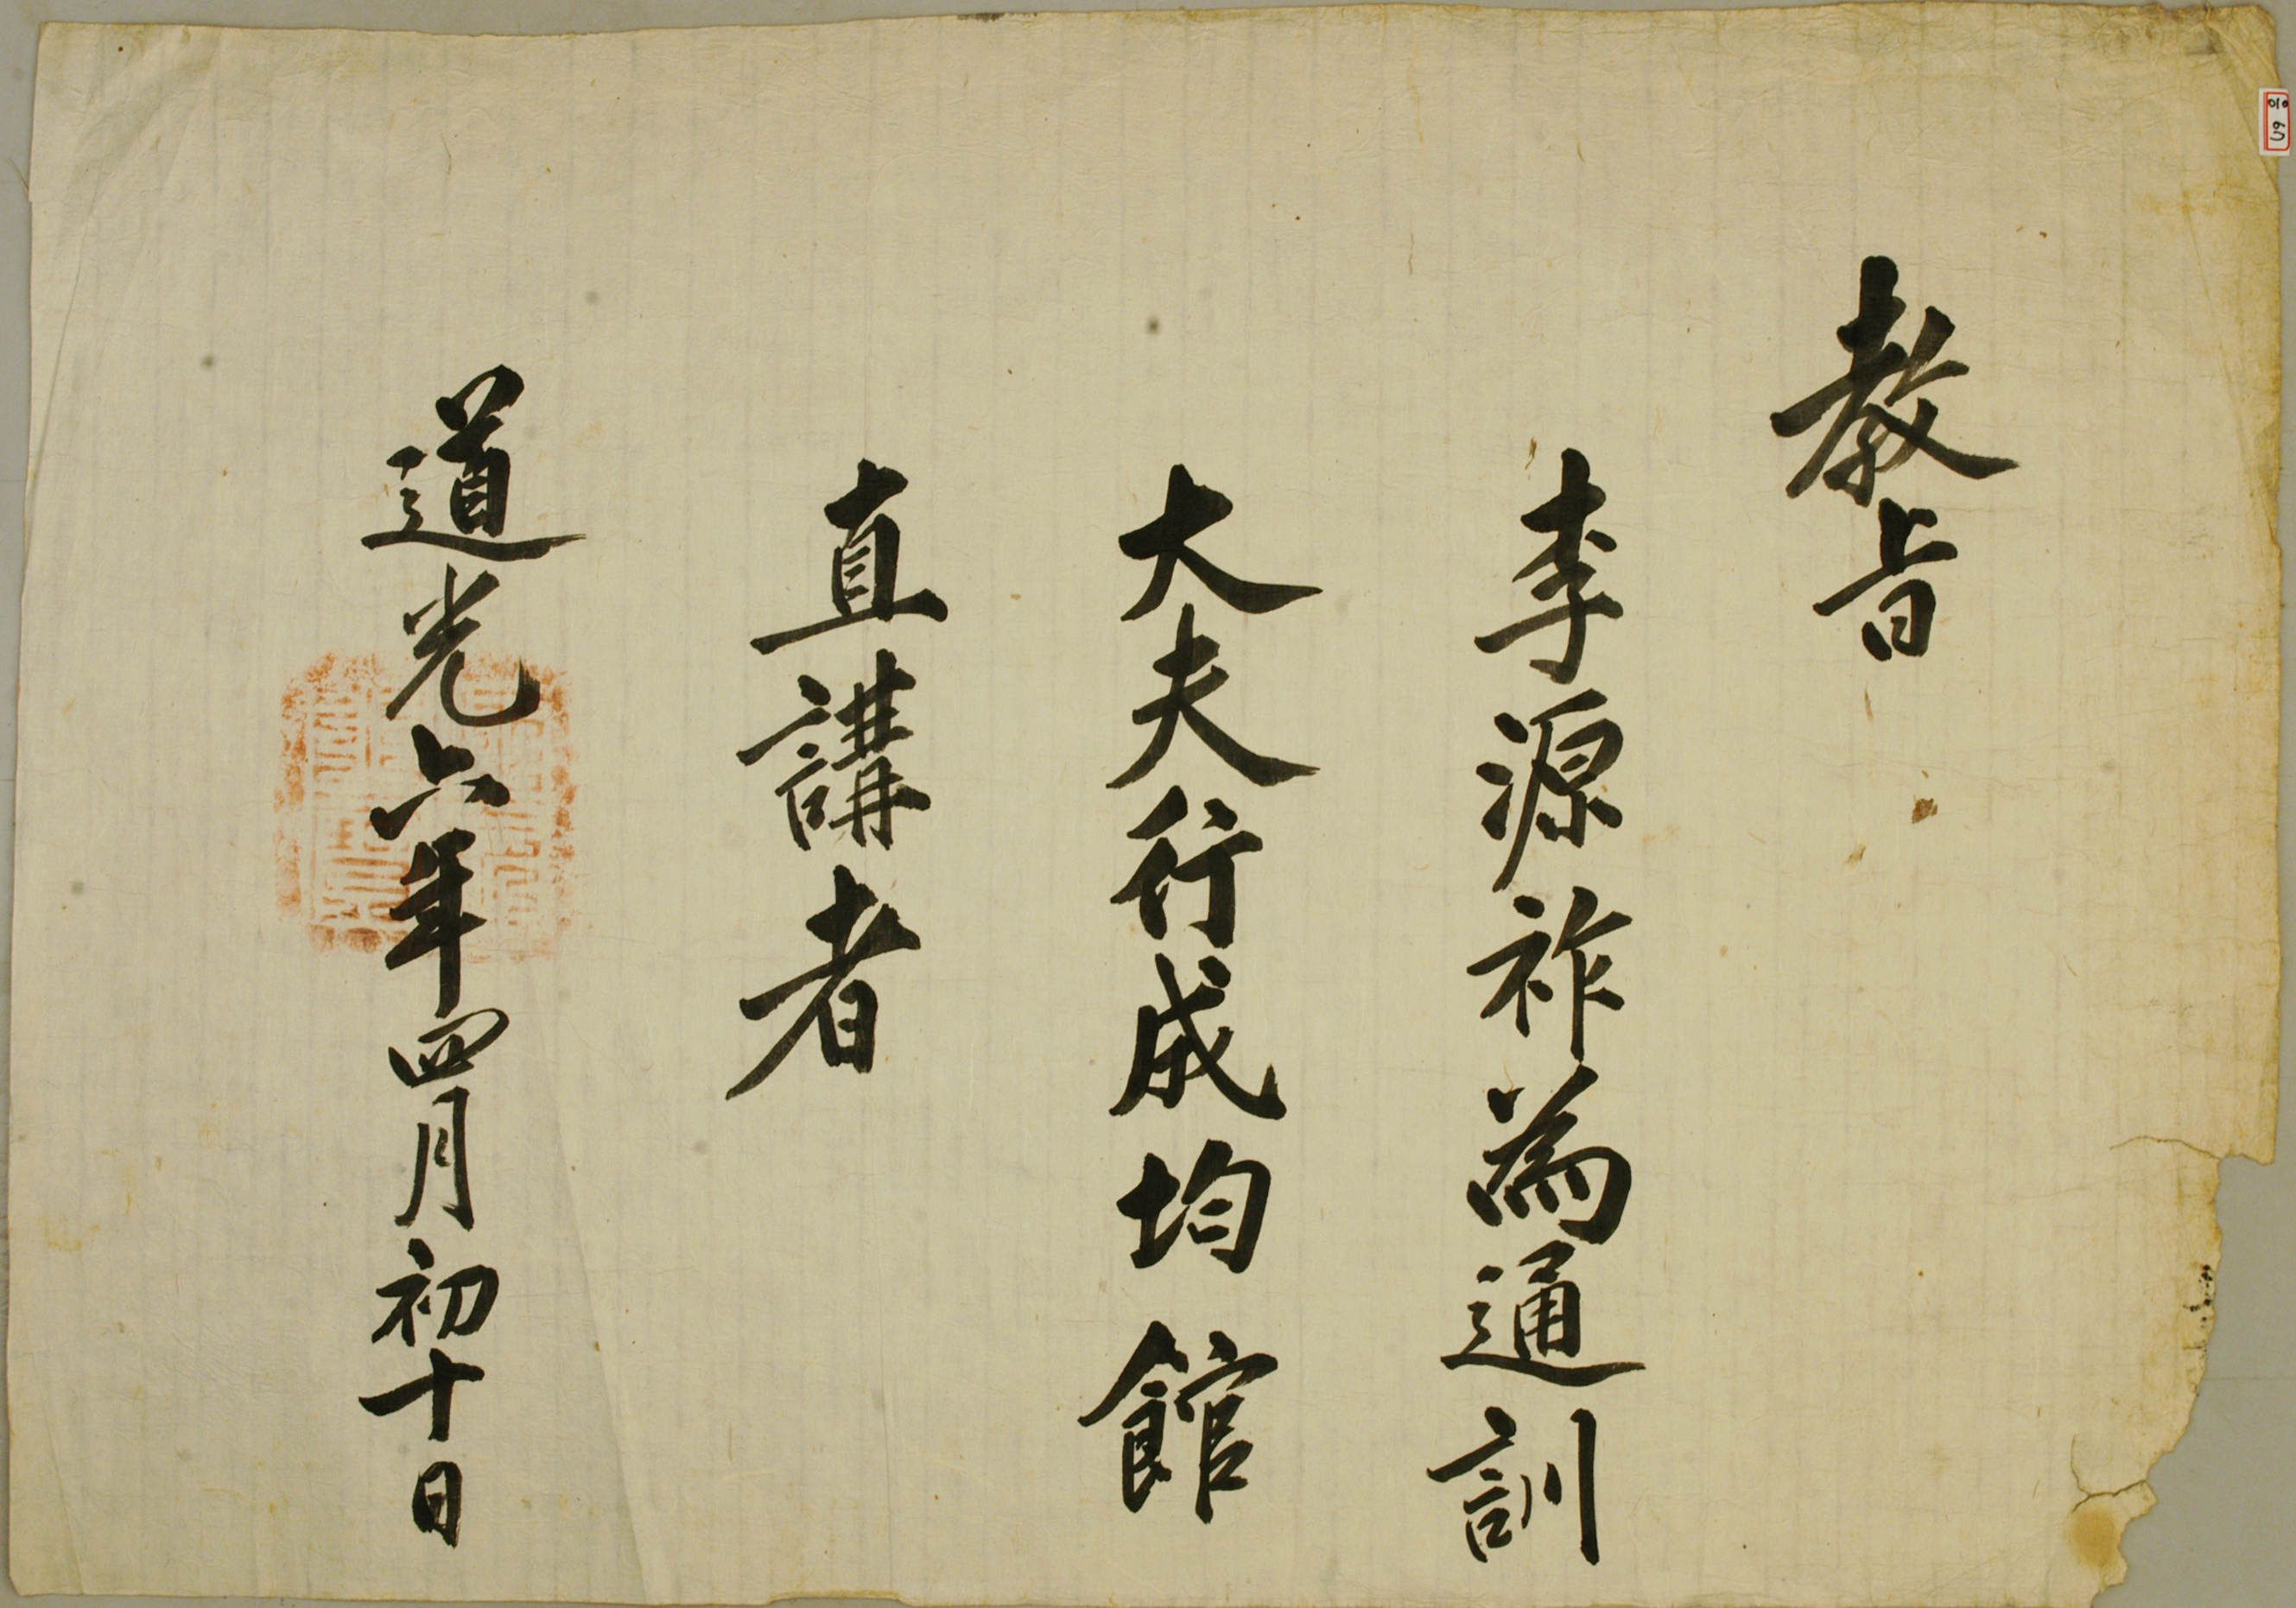 教旨
李源祚為通訓
大夫行成均館
直講者
道光六年四月初十日